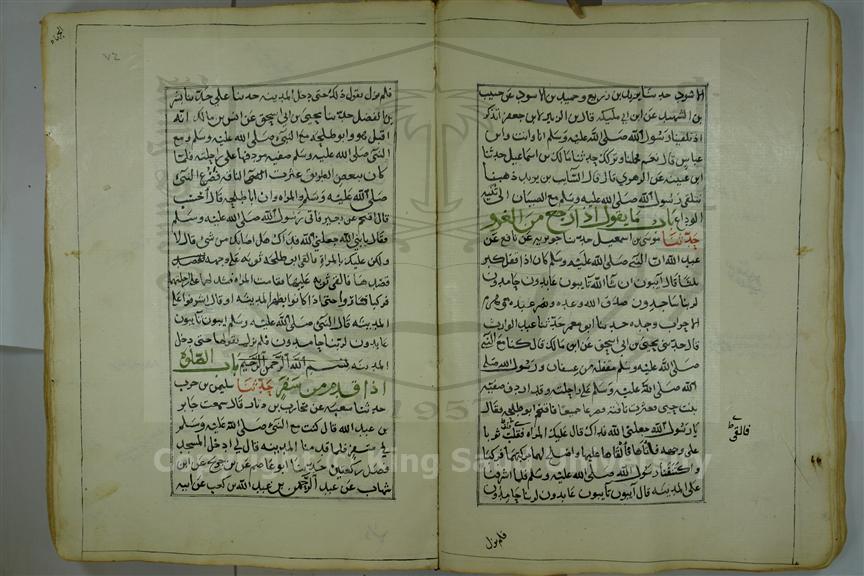 الاسود حدثنا يزيد بن زريع وحميد بن الاسود عن حبيب
بن الشهيد عن ابن ابي مليكة قال بن الزبير لابن جعفر اتذكر
اذ تلقينا رسول الله صلى الله عليه وسلم انا وانت وابن
عباس قال نعم فحملنا وتركك حدثنا مالك بن اسماعيل حدثنا
ابن عيينة عن الزهري قال قال السائب بن يزيد ذهبنا
نتلقى رسول الله صلى الله عليه وسلم مع الصبيان الى ثنية
الوداع باب ما يقول اذا رجع من الغزو
حدثنا موسى بن اسمعيل حدثنا جويرية عن نافع عن
عبد الله ان النبي صلى الله عليه وسلم كان اذا قفل كبر
ثلثا قال آيبون ان شا الله تايبون عابدون حامدون
لربنا ساجدون صدق الله وعده ونصر عبده وهزم
الاحزاب وحده حدثنا ابو معمر حدثنا عبد الوارث
قال حدثني يحيى بن ابي اسحق عن انس بن مالك قال كنا مع النبي
صلى الله عليه وسلم مقفله من عسفان ورسول الله صلى
الله عليه وسلم على راحلته وقد اردف صفية
بنت حيي فعثرت ناقته فصرعا جميعا فاقتحم ابو طلحة فقال
يا رسول الله جعلني الله فداك قال عليك المراة فقلب ثوبا
على وجهه واتاها فالقاها عليها واصلح لهما مركبهما فركبا
واكتنفنا رسول الله صلى الله عليه وسلم فلما اشرفنا
على المدينة قال آيبون تايبون عابدون لربنا حامدون
فلم يزل
فلم يزل يقول ذلك حتى دخل المدينة حدثنا علي حدثنا بشر
بن المفضل حدثنا يحيى بن ابي اسحق عن انس بن مالك انه
اقبل هو وابو طلحة مع النبي صلى الله عليه وسلم ومع
النبي صلى الله عليه وسلم صفية مردفها على راحلته فلما
كان ببعض الطريق عثرت الناقة فصرع النبي
صلى الله عليه وسلم والمراة وان ابا طلحة قال احسب
قال اقتحم عن بعيره فاتى رسول الله صلى الله عليه وسلم
فقال يا نبي الله جعلني الله فداك هل اصابك من شي قال لا
ولكن عليك بالمراة فالقى ابو طلحة ثوبه على وجهه فقصد
قصدها فالقى ثوبه عليها فقامت المراة فشد لهما على راحلتهما
فركبا فساروا حتى اذا كانوا بظهر المدينة او قال اشرفوا على
المدينة قال النبي صلى الله عليه وسلم ايبون تايبون
عابدون لربنا حامدون فلم يزل يقولها حتى دخل
المدينة بسم الله الرحمن الرحيم باب الصلوة
اذا قدم من سفر حدثنا سليمن بن حرب
حدثنا شعبة عن محارب بن دثار قال سمعت جابر
بن عبد الله قال كنت مع النبي صلى الله عليه وسلم
في سفر فلما قدمنا المدينة قال لي ادخل المسجد
فصل ركعتين حدثنا ابو عاصم عن بن جريج عن ابن
شهاب عن عبد الرحمن بن عبد الله بن كعب عن ابيه
1957
King Saud University